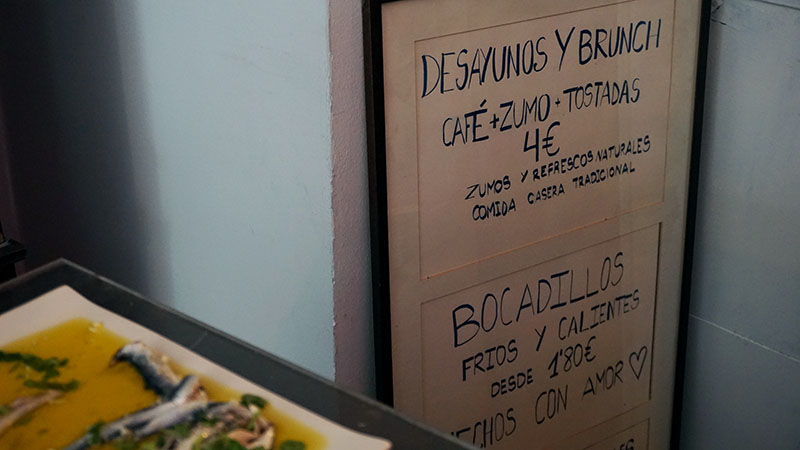 DESAYUNOS Y BRUNCH
CAFÉ + ZUMO + TOSTADAS
4€
ZUMOS Y REFRESCOS NATURALES
COMIDA CASERA TRADICIONAL
BOCADILLOS
FRIOS Y CALIENTES
DESDE 1'80€
HECHOS CON AMOR ♡